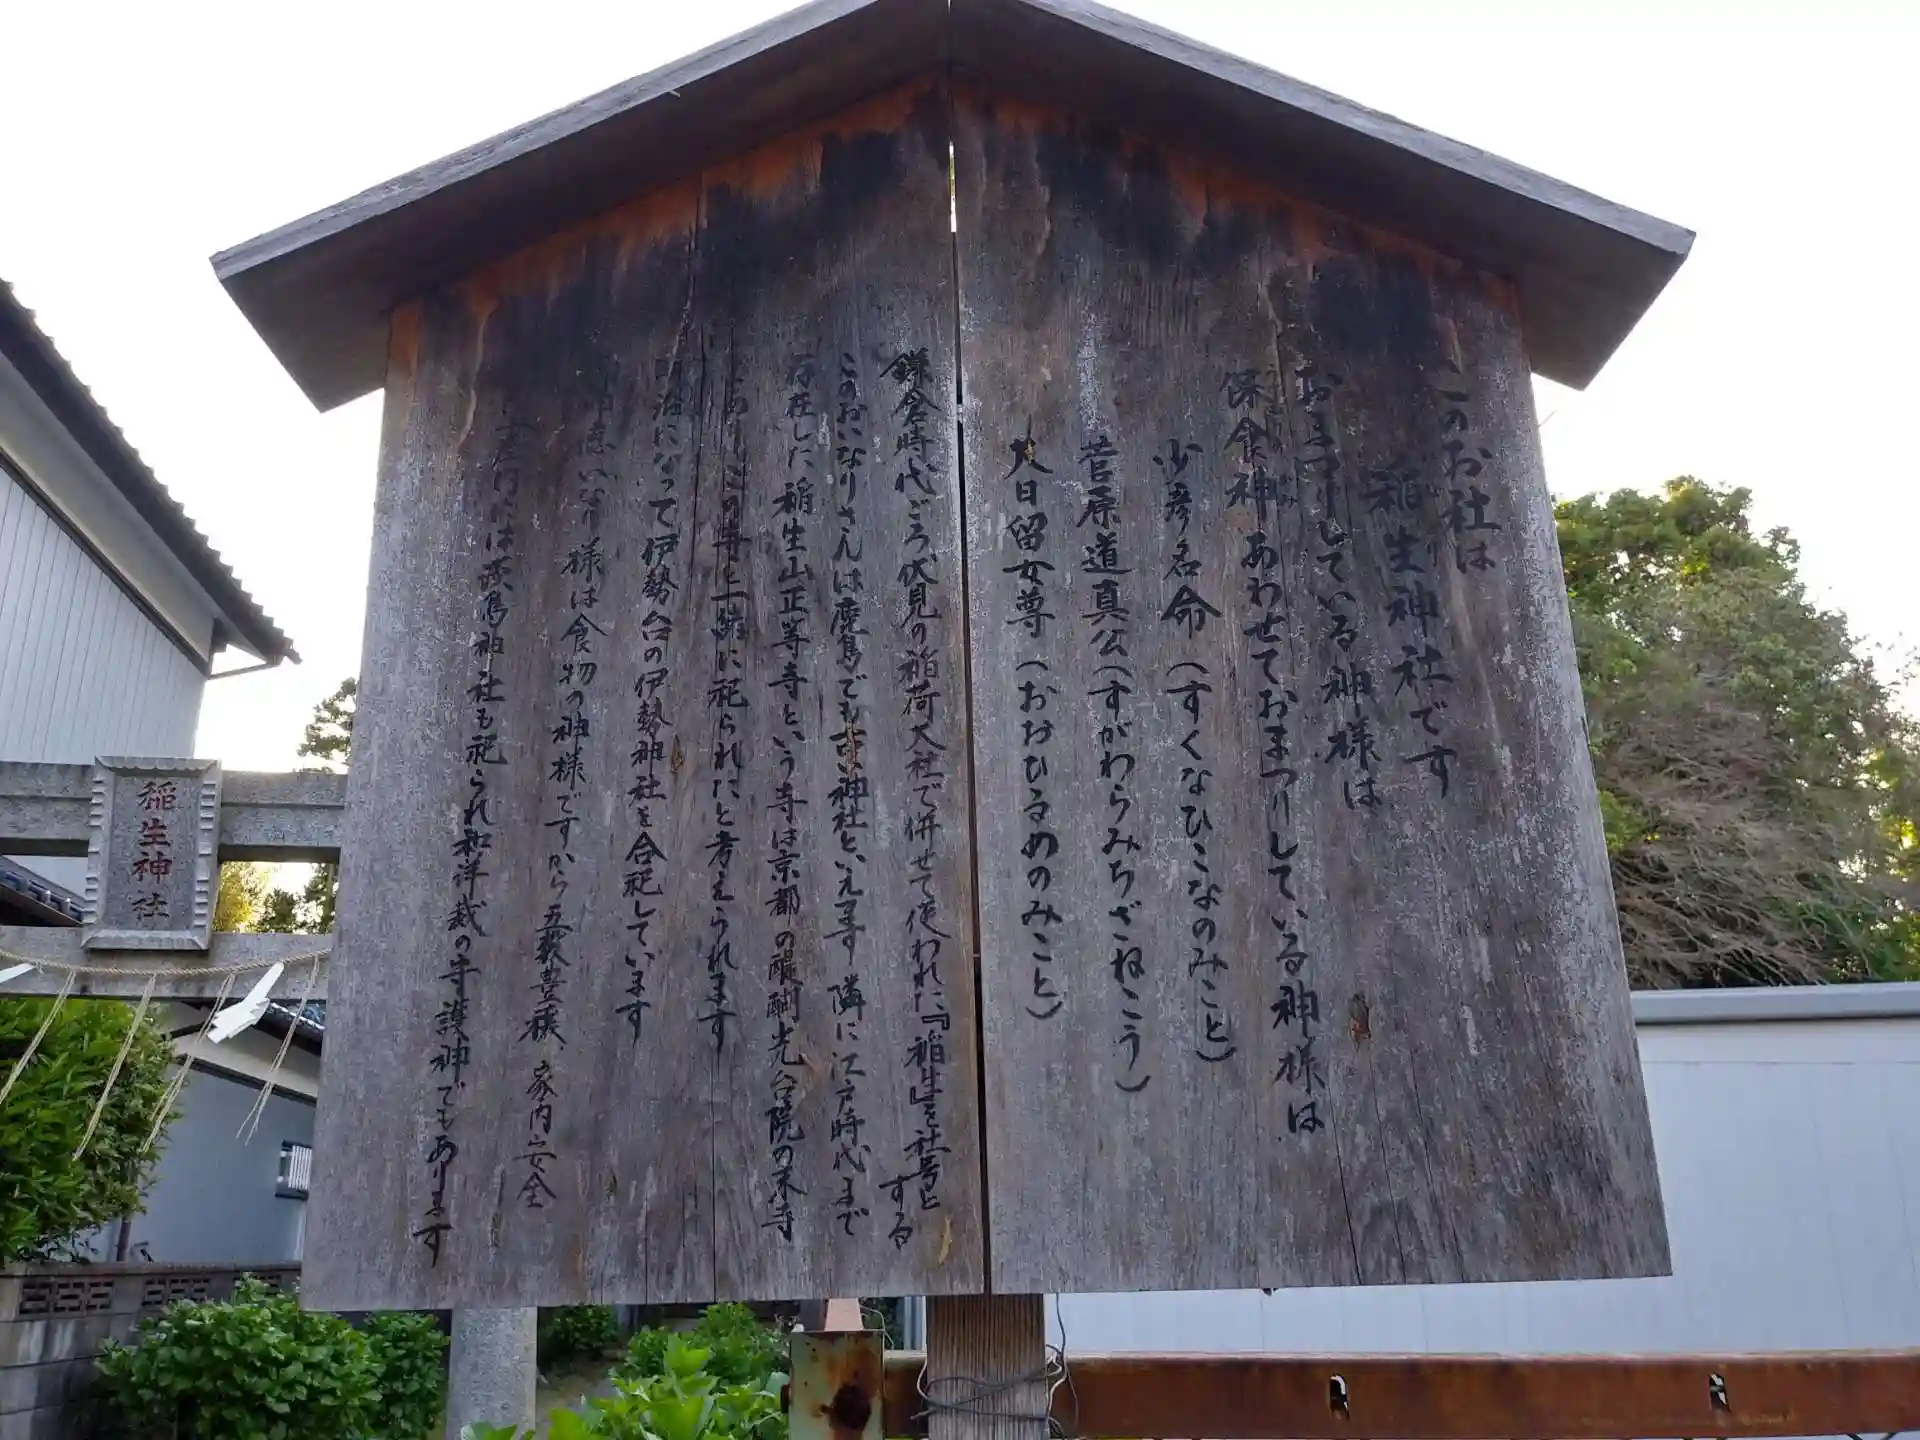 このお社は
稲生神社です
おまつりしている神様は
保食神 あわせておまつりしている神様は
少彦名命(すくなひこなのみこと)
菅原道真公(すがわらみちざねこう)
大日留女尊(おおひるめのみこと)
鎌倉時代ごろ伏見の稲荷大社で併せて使われた『稲生』を社号とする
このおいなりさんは鹿島でも古い神社といえます 隣に江戸時代まで
存在した 稲生山正等寺という寺は京都の醍醐光台院の末寺
であり この寺と一緒に祀られたと考えられます
明治になって伊勢台の伊勢神社を合祀しています
いなり様は食物の神様ですから五穀豊穣、家内安全
には淡島神社も祀られ和洋裁の守護神でもあります
稲生神社